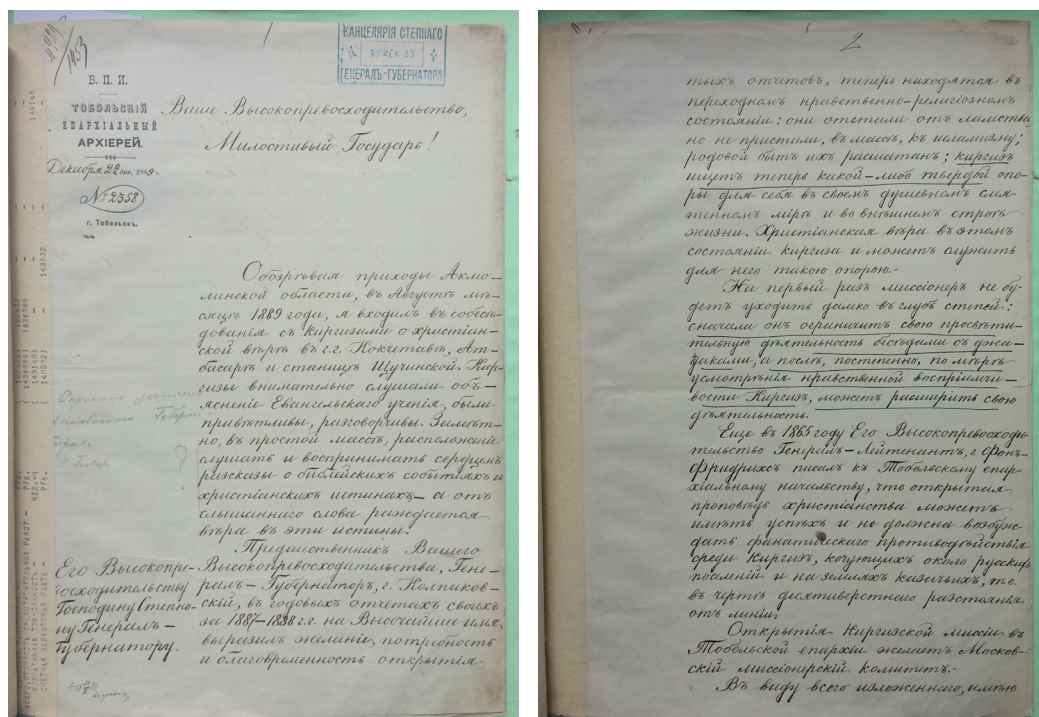 КАНЦЕЛЯРІЯ СТЕПНАГО
ГЕНЕРАЛЪ-ГУБЕРНАТОРА
В. П. И.
ТОБОЛЬСКІЙ
ЕПАРХІАЛЬНЫЙ
АРХІЕРЕЙ.
Декабря 22 дня, 1889 г.
№ 2358
г. Тобольскъ.
Ваше Высокопревосходительство,
Милостивый Государь!
Обозрѣвая приходы Акмо-
линской области, въ Августѣ мѣ-
сяцѣ 1889 года, я входилъ въ собесѣ-
дованія съ Киргизами о христіан-
ской вѣрѣ въ г.г. Кокчетавѣ, Ат-
басарѣ и станицѣ Щучинской. Кир-
гизы внимательно слушали объ-
ясненіе Евангельскаго ученія, были
привѣтливы, разговорчивы. Замѣт-
но, въ простой массѣ, расположеніе
слушать и воспринимать сердцемъ
разсказы о библейскихъ событіяхъ и
христіанскихъ истинахъ, – а отъ
слышаннаго слова рождается
вѣра въ эти истины.
Предшественникъ Вашего
Высокопревосходительства, Гене-
ралъ-Губернаторъ, г. Колпаков-
скій, въ годовыхъ отчетахъ своихъ
за 1887-1888 г.г. на Высочайшее имя,
выразилъ желаніе, потребность
и благовременность открытія
Его Высокопре-
восходительству
Господину Степно-
му Генералъ-
Губернатору.
2
тыхъ отчетовъ, теперь находятся въ
переходномъ нравственно-религіозномъ
состояніи: они отстали отъ ламства,
но не пристали, въ массѣ, къ исламизму;
родовой бытъ ихъ расшатанъ; киргизъ
ищетъ теперь какой-либо твердой опо-
ры для себя въ своемъ душевномъ смя-
тенномъ мірѣ и во внѣшнемъ строѣ
жизни. Христіанская вѣра въ этомъ
состояніи киргиза и можетъ служить
для него такою опорою.-
На первый разъ миссіонеръ не бу-
детъ уходить далеко въ глубь степей:
сначала онъ ограничитъ свою просвѣти-
тельную дѣятельность бесѣдами съ джа-
таками, а послѣ, постепенно, по мѣрѣ
усмотрѣнія нравственной воспріимчи-
вости Киргиз, можетъ расширить свою
дѣятельность.
Еще въ 1865 году Его Высокопревосходи-
тельство Генералъ-Лейтенантъ, г. Фонъ-
Фридрихсъ писалъ къ Тобольскому епар-
хіальному начальству, что открытая
проповѣдь христіанства можетъ
имѣть успѣхъ и не должна возбуж-
дать фанатическаго противодѣйствія
среди Киргиз, кочующихъ около русскихъ
поселеній и на земляхъ казачьихъ, т.е.
въ чертѣ десятиверстнаго разстоянія
отъ линіи.
Открытія Киргизской миссіи въ
Тобольской епархіи желаетъ Москов-
скій миссіонерскій комитетъ.-
Въ виду всего изложеннаго, имѣю